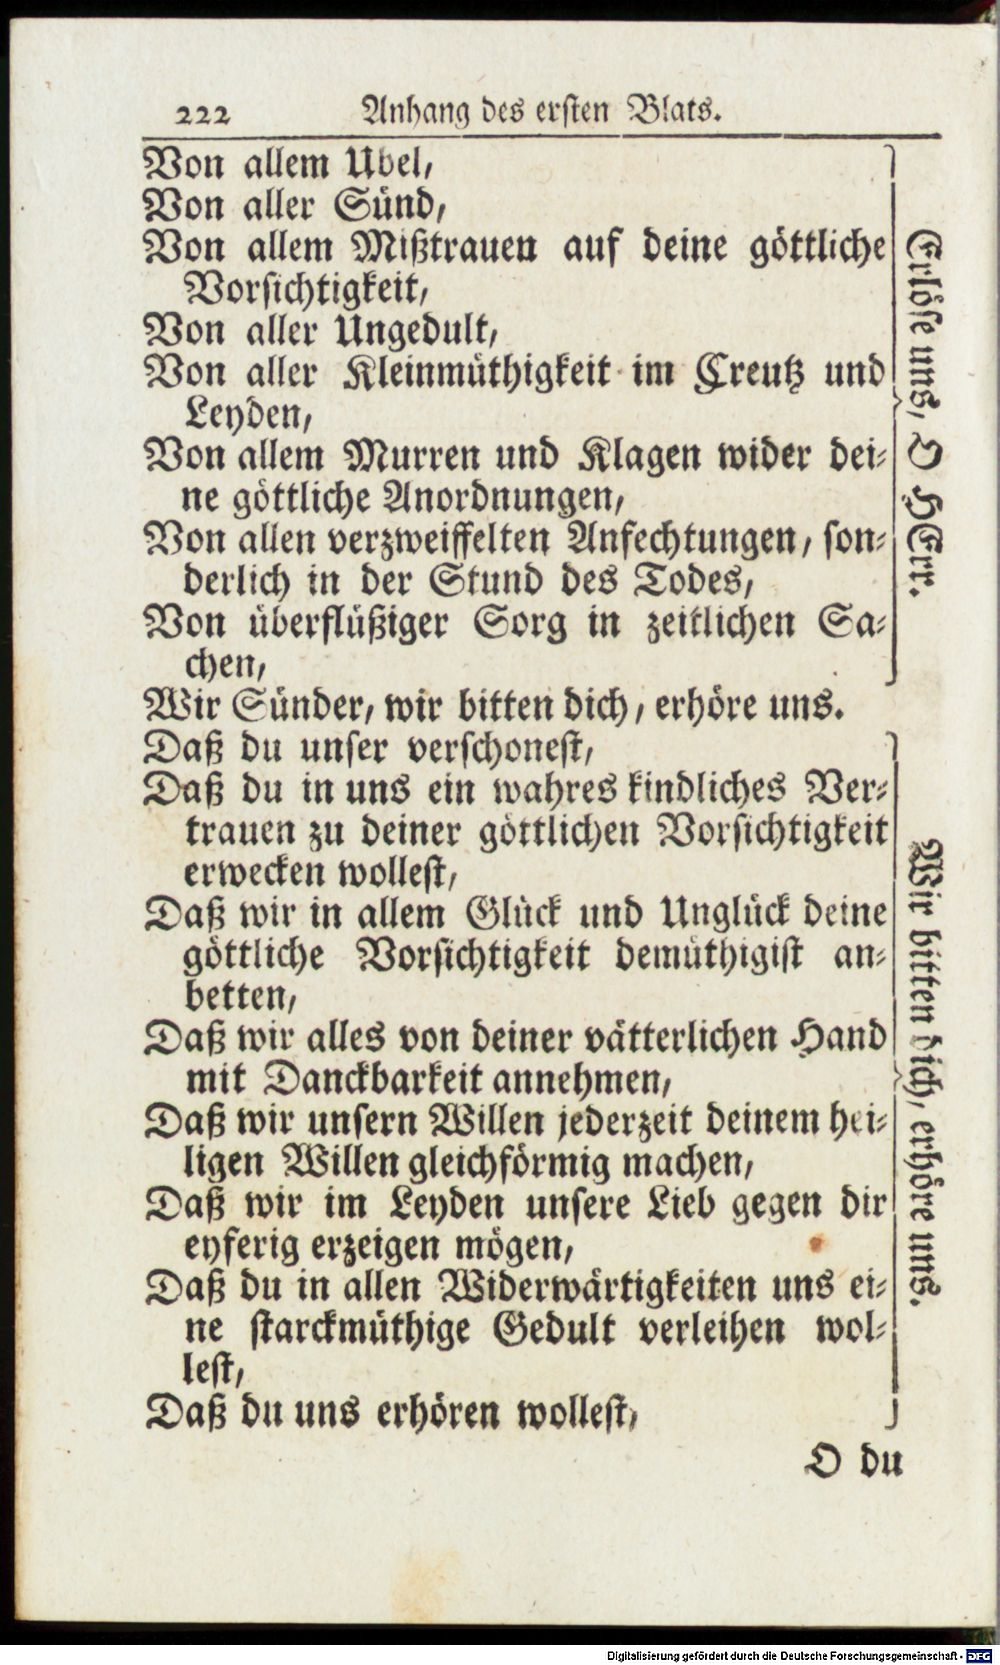 222 Anhang des ersten Blats.
Von allem Ubel,
Von aller Sünd,
Von allem Mißtrauen auf deine göttliche
Vorsichtigkeit,
Von aller Ungedult,
Von aller Kleinmüthigkeit im Creutz und
Leyden,
Von allem Murren und Klagen wider dei-
ne göttliche Anordnungen,
Von allen verzweiffelten Anfechtungen, son-
derlich in der Stund des Todes,
Von überflüßiger Sorg in zeitlichen Sa-
chen,
Erlöse uns, O HErr.
Wir Sünder, wir bitten dich, erhöre uns.
Daß du unser verschonest,
Daß du in uns ein wahres kindliches Ver-
trauen zu deiner göttlichen Vorsichtigkeit
erwecken wollest,
Daß wir in allem Glück und Unglück deine
göttliche Vorsichtigkeit demüthigist an-
betten,
Daß wir alles von deiner vätterlichen Hand
mit Danckbarkeit annehmen,
Daß wir unsern Willen jederzeit deinem hei-
ligen Willen gleichförmig machen,
Daß wir im Leyden unsere Lieb gegen dir
eyferig erzeigen mögen,
Daß du in allen Widerwärtigkeiten uns ei-
ne starckmüthige Gedult verleihen wol-
lest,
Daß du uns erhören wollest,
Wir bitten dich, erhöre uns.
O du
Digitalisierung gefördert durch die Deutsche Forschungsgemeinschaft - DFG